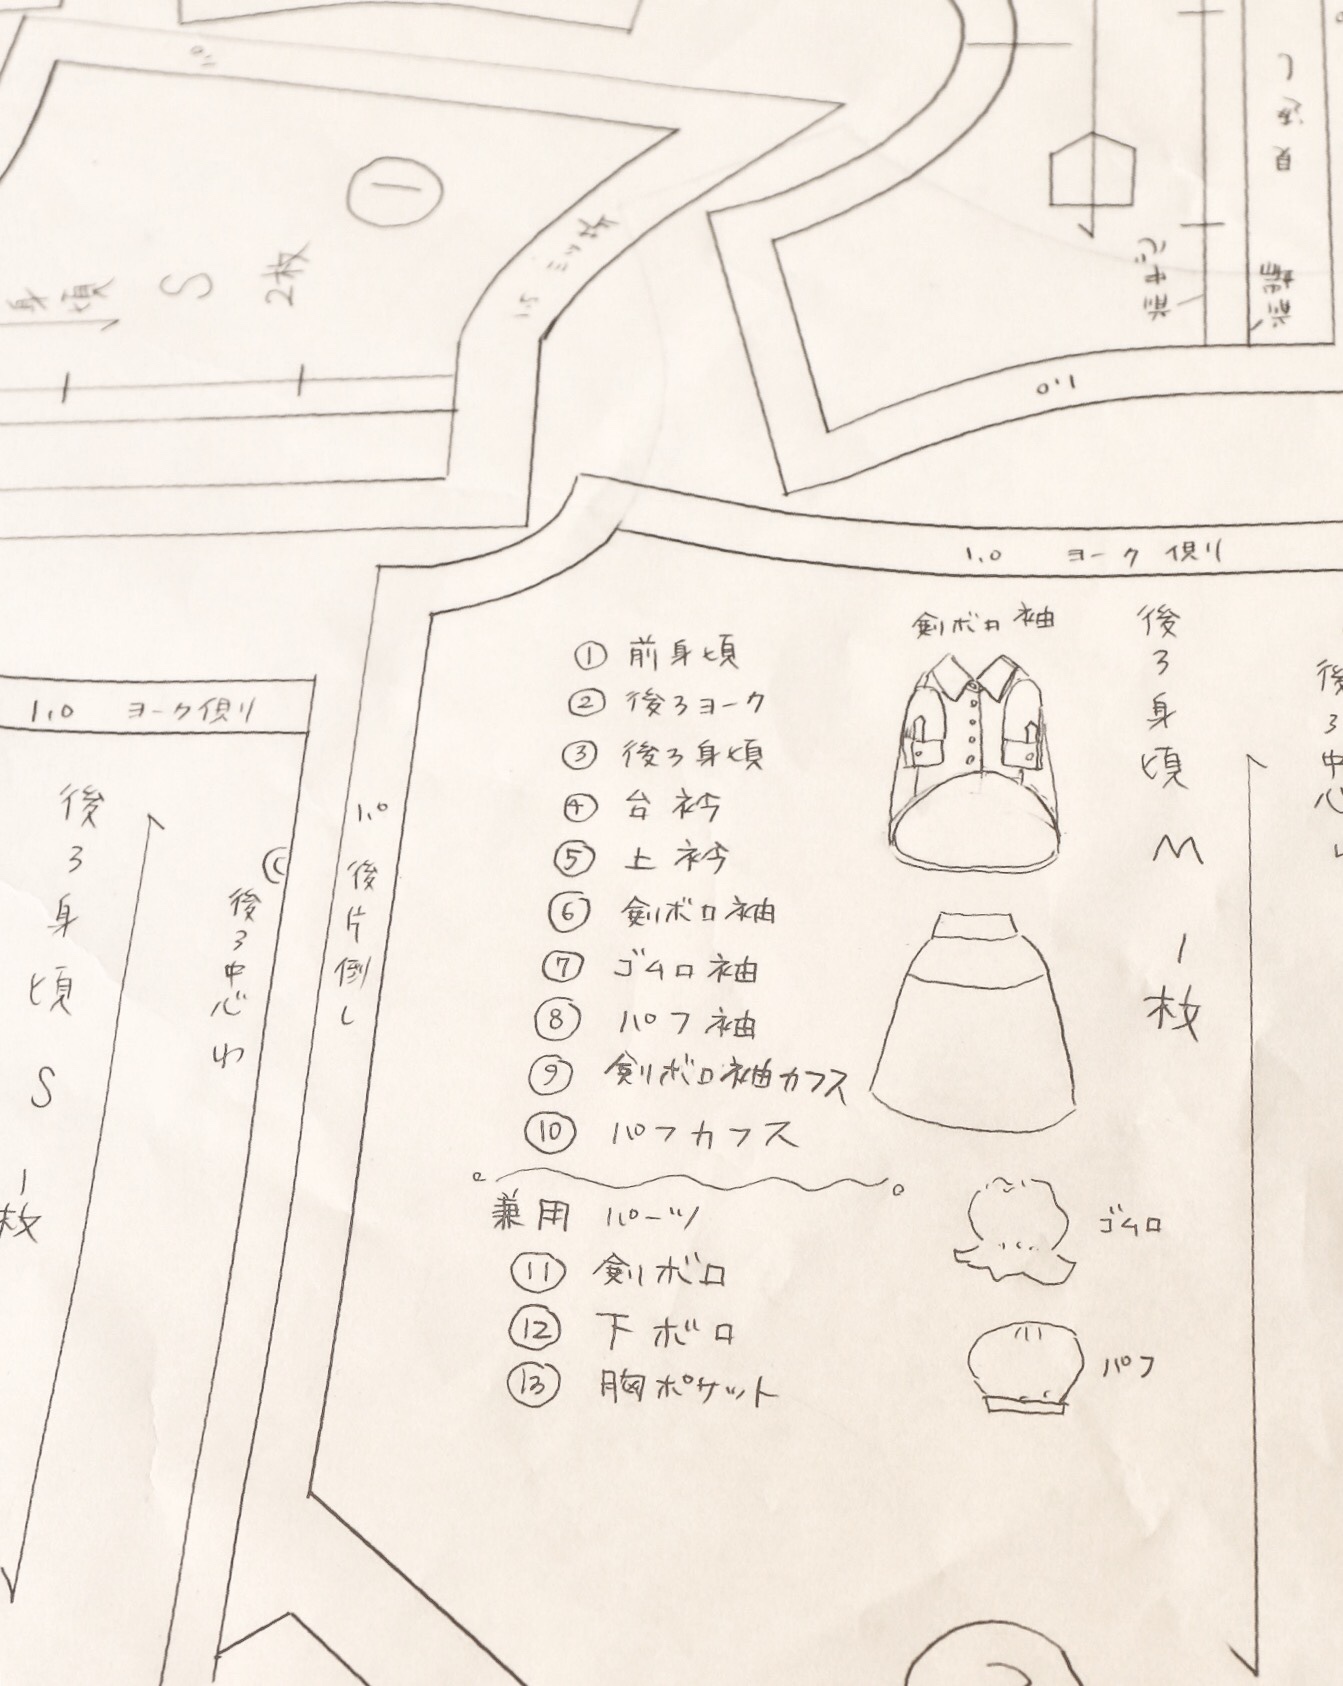 0.7
①
身頃
S
2枚
1.5 ミツ折
見返し
前中心
前端
1.0
1.0 ヨーク側リ
1.0 ヨーク側リ
後ろ身頃 S 1枚
後ろ中心わ
1.0 後片倒し
① 前身頃
② 後ろヨーク
③ 後ろ身頃
④ 台衿
⑤ 上衿
⑥ 剣ボロ袖
⑦ ゴムロ袖
⑧ パフ袖
⑨ 剣ボロ袖カフス
⑩ パフカフス
兼用 パーツ
⑪ 剣ボロ
⑫ 下ボロ
⑬ 胸ポケット
剣ボロ袖
ゴムロ
パフ
後ろ身頃 M 1枚
後ろ中心わ